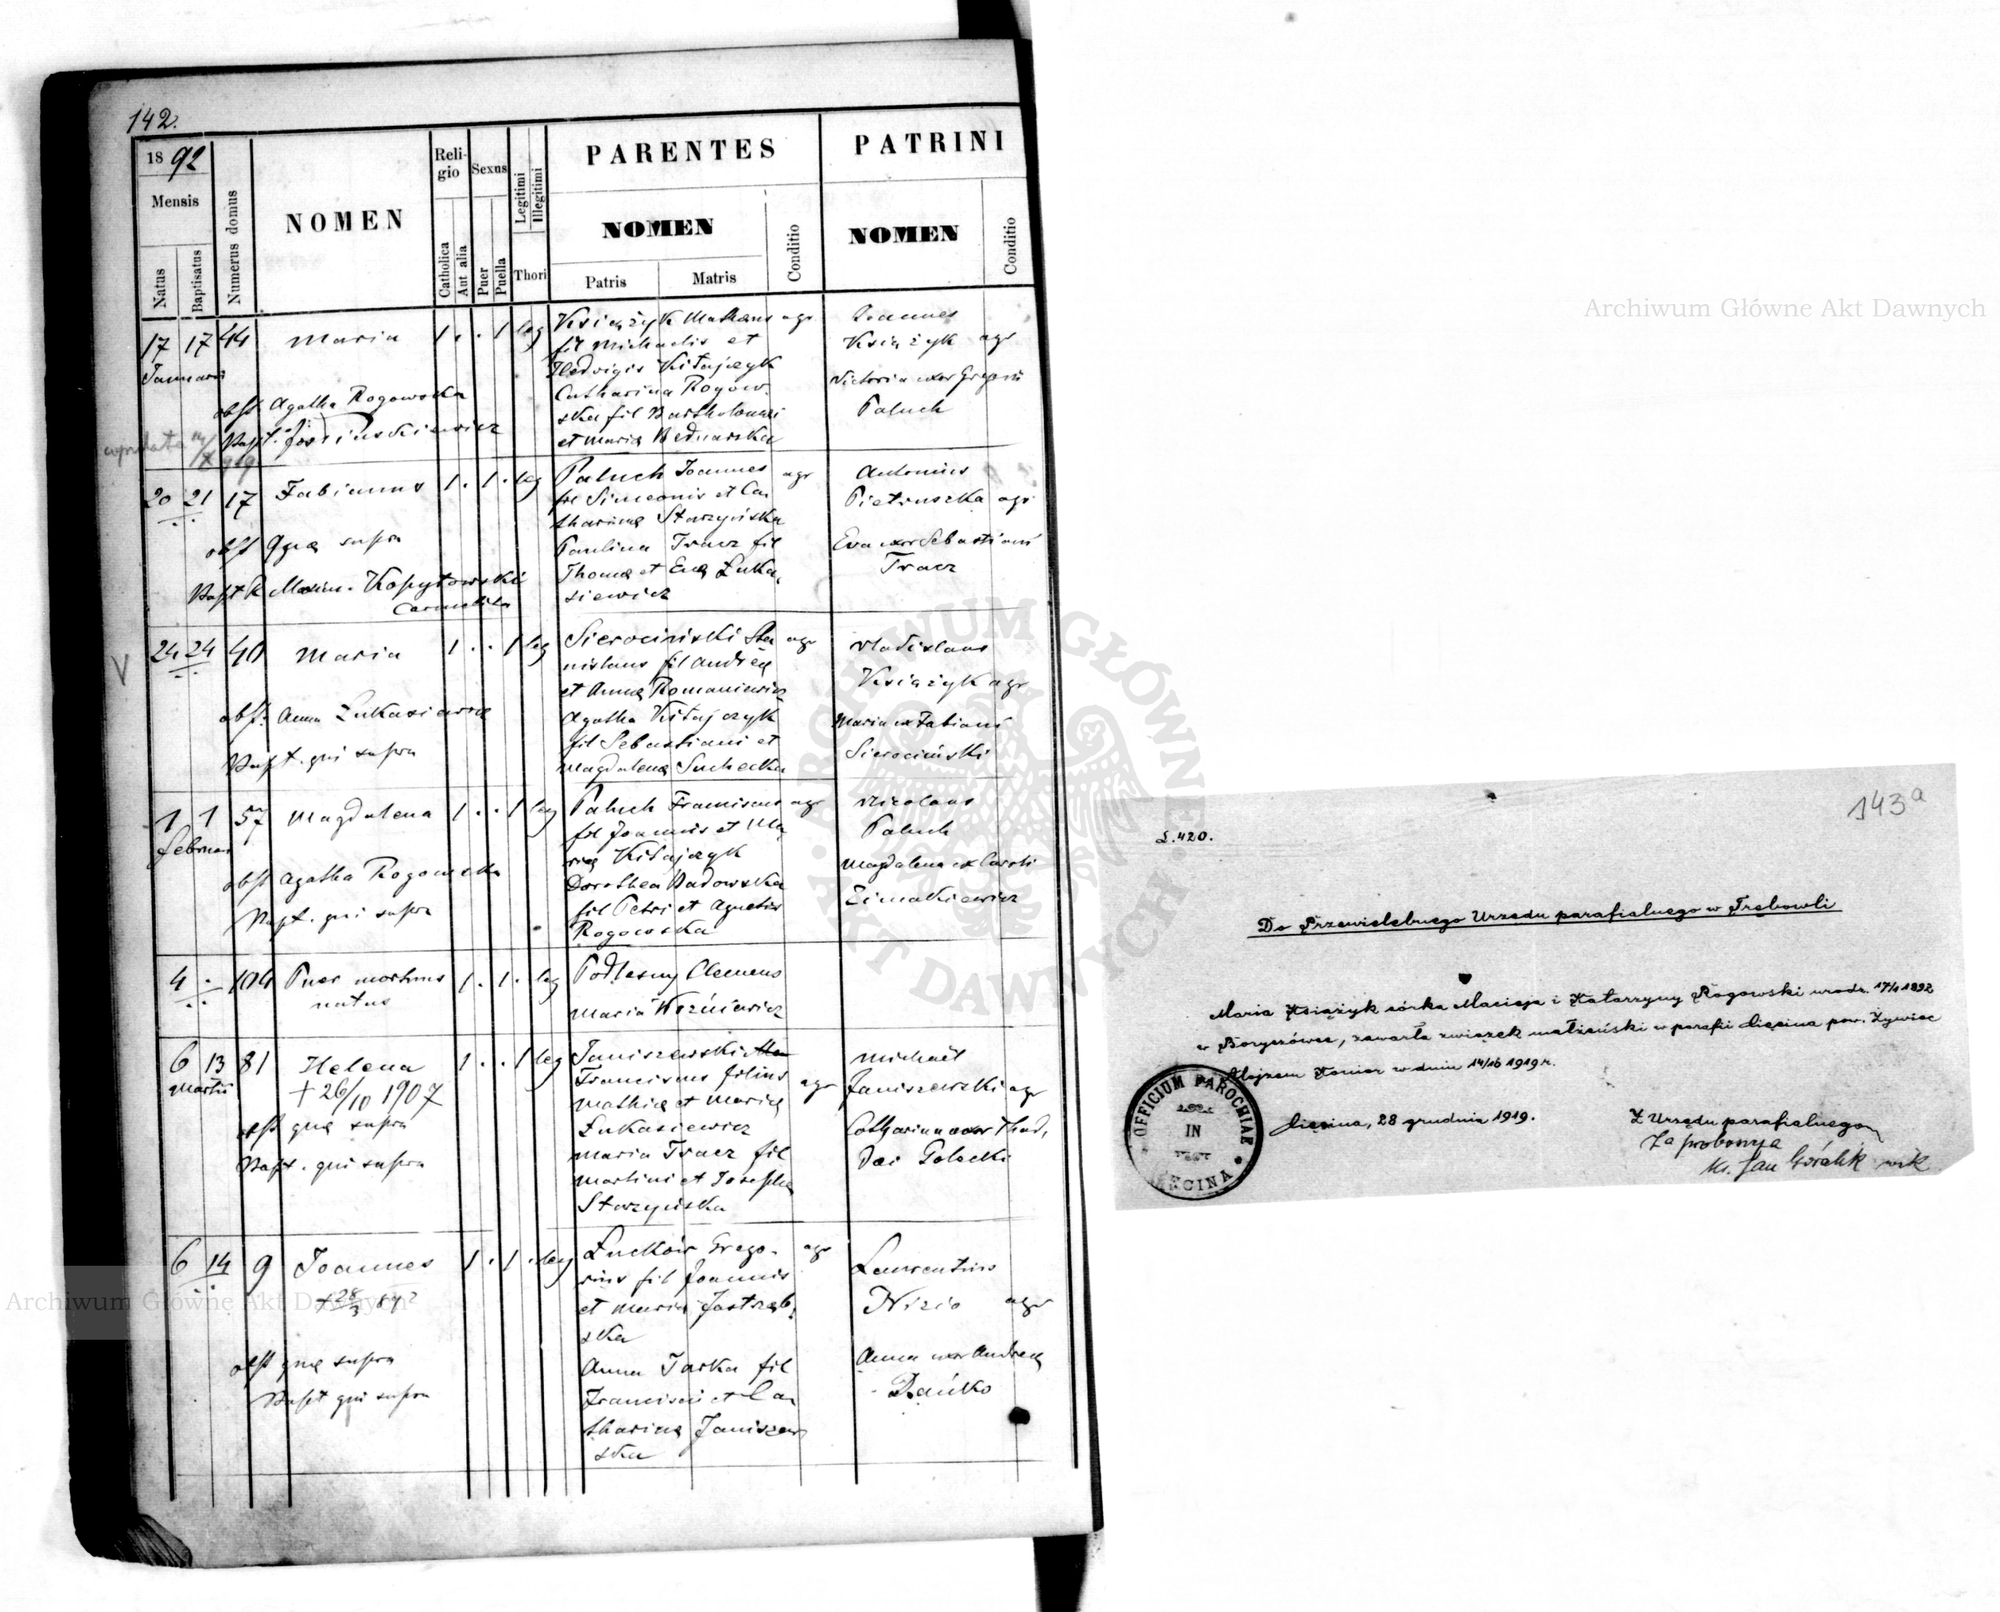 142.
18 92
Mensis
Natus
Baptisatus
Numerus domus
NOMEN
Religio
Catholica
Aut alia
Sexus
Puer
Puella
Legitimi
Illegitimi
Thori
PARENTES
NOMEN
Patris
Matris
Conditio
PATRINI
NOMEN
Conditio
17 17 44 Maria 1 . . 1 leg
Januarii
obst. Agatha Rogowska
Bapt.
copulata 14/X 919
Książyk Mathaeus agr
fil Michaelis et
Hedvigis Kitajczyk
Catharina Rogow-
ska fil Bartholomaei
et Maria Bednarska
Joannes
Książyk agr
Victoria uxor Gregorii
Paluch
20 21 17 Fabianus 1 . 1 . leg
obst quae supra
Bapt R Maxim. Kopytowski
Carmelita
Paluch Joannes agr
fil Simeonis et Ca
tharinae Starzyńska
Paulina Tracz fil
Thomae et Evae Łuka-
siewicz
Antonius
Pietruszka agr
Eva uxor Sebastiani
Tracz
V
24 24 40 Maria 1 . . 1 leg
obst. Anna Łukasiewicz
Bapt. qui supra
Sierociński Sta agr
nislaus fil Andreae
et Annae Romaniewicz
Agatha Kitajczyk
fil Sebastiani et
Magdalenae Suchecka
Vladislaus
Książyk agr
Maria ux Fabiani
Sierociński
1 1 57 Magdalena 1 . . 1 leg
Februar
obst Agatha Rogowska
Bapt. qui supra
Paluch Franciscus agr
fil Joannis et Ma
riae Kitajczyk
Dorothea Sadowska
fil Petri et Agnetis
Rogowska
Nicolaus
Paluch
Magdalena ux Caroli
Zimakiewicz
4 104 Puer mortuus 1 . 1 . leg
natus
Podlesny Clemens
Maria Woźniewicz
6 13 81 Helena 1 . . 1 leg
Martii
+ 26/10 1907
obst quae supra
Bapt. qui supra
Janiszewski
Franciscus filius agr
Mathiae et Mariae
Łukasiewicz
Maria Tracz fil
Martini et Josepha
Starzyńska
Michael
Janiszewski agr
Catharina uxor Thad-
daei
6 14 9 Joannes 1 . 1 . leg
+ 28/3
obst quae supra
Bapt qui supra
Łuckow Grego- agr
rius fil Joannis
et Maria Jastrzęb-
ska
Anna Tarka fil
Francisci et Ca
tharinae Janiszew
ska
Laurentius
Nizio agr
Anna uxor Andreae
Dańko
143a
L.420.
Do Przewielebnego Urzędu parafialnego w Trębowli
Maria Książyk córka Macieja i Katarzyny Rogowski urodz. 17/1 1892
w Boryczówce, zawarła związek małżeński w parafii Cięcina pow. Żywiec
Alojzem Konior w dniu 14/10 1919 r.
Cięcina, 28 grudnia 1919.
Z Urzędu parafialnego
Za proboszcza
ks. Jan Góralik wik
OFFICIUM PAROCHIAE
IN
CIĘCINA
Archiwum Główne Akt Dawnych
Archiwum Główne Akt Dawnych
ARCHIWUM GŁÓWNE · AKT DAWNYCH ·